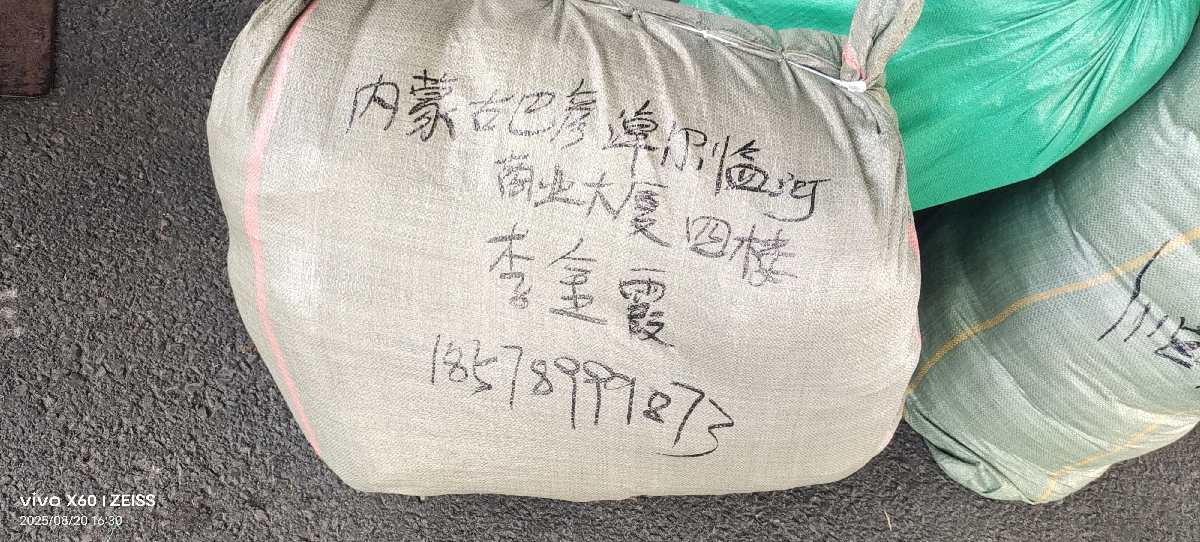 内蒙古巴彦淖尔临河
商业大厦四楼
李金霞
18578999873
vivo X60 | ZEISS
2025/08/20 16:30